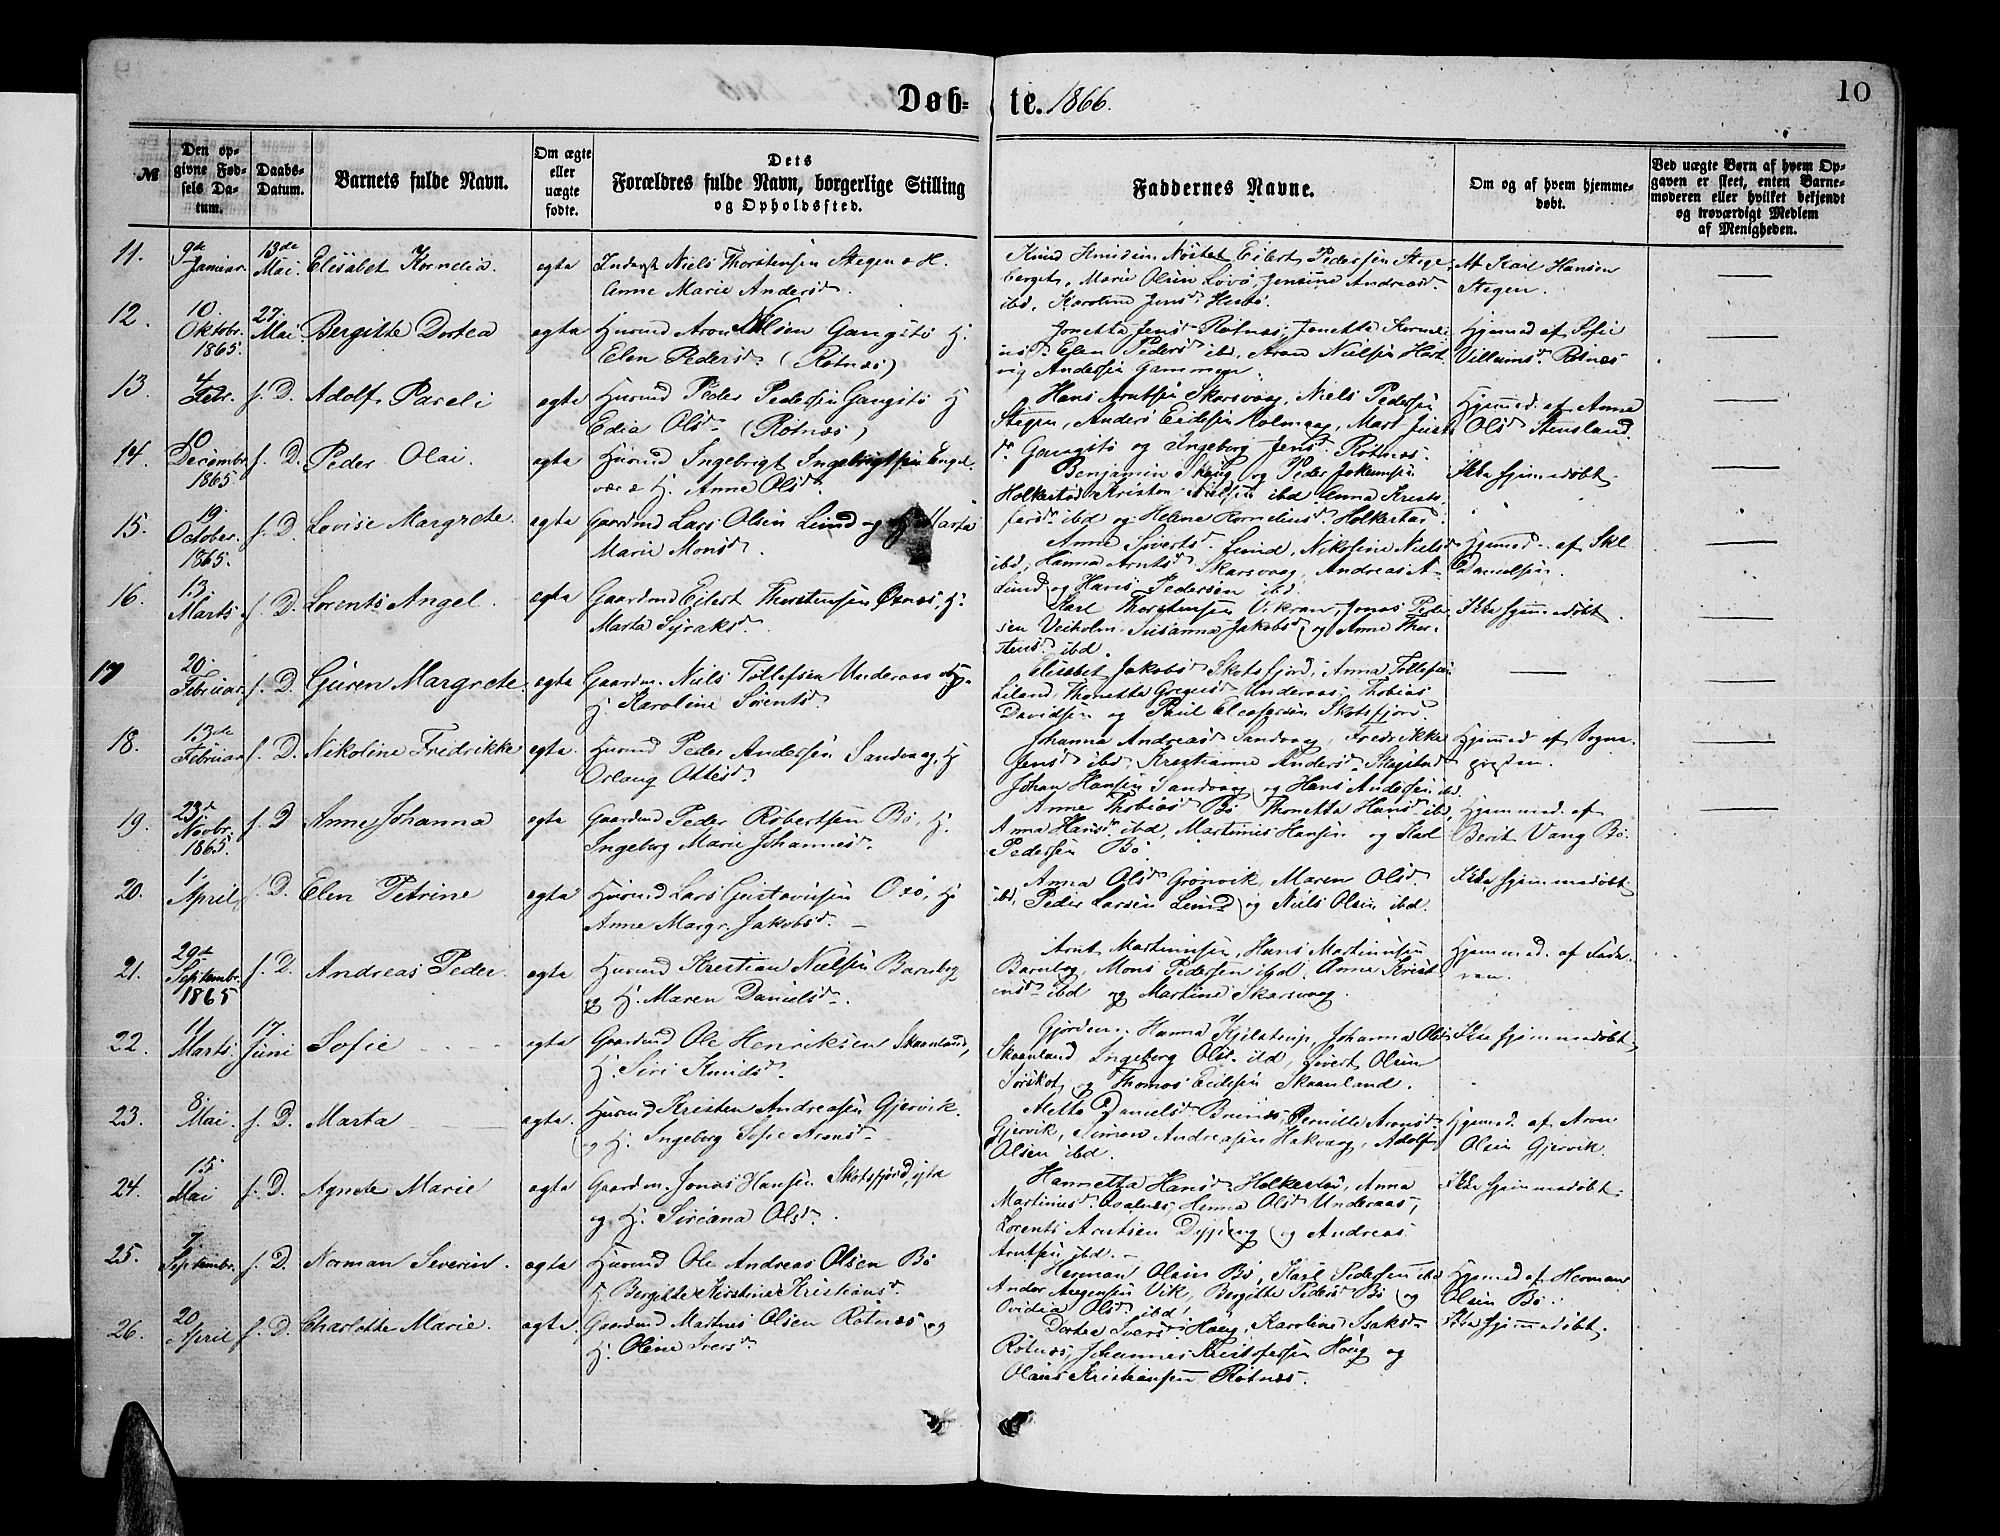 Døb- te. 1866.
10
№
Den opgivne Fødsels Datum.
Daabs-Datum.
Barnets fulde Navn.
Om ægte eller uægte fødte.
Dets Forældres fulde Navn, borgerlige Stilling og Opholdssted.
Faddernes Navne.
Om og af hvem hjemmedøbt.
Ved uægte Børn af hvem Opgaven er skeet, enten Barnemoderen eller hvilket bekjendt og troværdigt Medlem af Menigheden.
11. 9de Januar. 13de Mai. Elisabet Kornelia. egta Inderst Niels Thorstensen Stegen & H.
Anne Marie Andersd.
Knud Knudsen Nøstet Eilert Pedersen Stege
berget, Marie Olsen Lovö, Jensine Andreasd.
ibd, Karoline Jensd.
Af Karl Hansen
Stegen.
12. 10. Oktobr. 1865. 27. Mai Bergitte Dortea egta Huusmd Aron Nilsen Gangstö H.
Elen Pedersd. (Rötnæs)
Jonetta Jensd. Rötnæs, Jonetta
Elen Pedersd. ibd, Aron Nielsen Hart
vig Andersen Gammen.
Hjemmed af Sofie
Villumsd. Rötnæs
13. 4. Febr. s. D. Adolf Pareli egta Huusmd Peder Pedersen Gangstö H
Edia Olsd. (Rötnæs)
Hans Arntsen Skarsvaag, Niels Pedersen
Stegen, Anders Eidesen Holmaag, Mart
Gangstö og Ingeborg Jensd. Rötnæs.
Hjemmed. af Anne
Olsd. Stensland.
14. 10 Decembr 1865 s. D. Peder Olai. egta Huusmd Ingebrigt Ingebrigtsen Engel-
vær & H. Anne Olsd.
Benjamin Skaug og Peder Jakumsen
Holkestad Kristen Nielsen ibd Enna Krists
fersd. ibd og Helene Kornelius. Holkestad.
Ikke hjemmedöbt.
15. 19. October. 1865. s. D Lovise Margrete. egta Gaardmd Lars Olsen Lund og H. Marta
Marie Monsd.
Anne Siverts. Lund, Nikoline Nielsd
ibd, Hanna Arntsd Skarsvaag, Andreas A-
Lund og Hans Pedersen ibd.
Hjemmed. af Skl
Danielsen.
16. 13. Marts. s. D. Lorents Angel. egta Gaardmd Eilert Thorstensen Öxnæs, H.
Marta Syraksd.
Karl Thorstensen Vikran, Jonas Peder
sen Veiholm Susanna Jakobsd og Anne Thor-
stensd. ibd.
Ikke hjemmedöbt.
17 20. Februar s. D. Guren Margrete egta Gaardm. Niels Tollefsen Underaas og
H. Karoline Sörentsd.
Elisabet Jakobsd Skotsfjord, Anna Tollefsen
Leiland, Thonetta Gregusd Underaas, Thobias
Davidsen og Paul Eleasersen Skotsfjord.
18. 13de Februar s. D. Nikoline Fridrikke egta. Huusmd Peder Andersen Sandvaag, H
Orlaug Ottesd.
Johanna Andreasd Sandvaag, Fredrikke
Jensd ibd, Kristianne Andersd. Skagstad
Johan Hansen Sandvaag og Hans Andersen ibd.
Hjemmed af Sogne-
presten.
19. 23d Novbr. 1865. s. D Anne Johanna egta Gaardmd Peder Robertsen Bö, H.
Ingeborg Marie Johannesd.
Anne Thobiasd Bö Thonetta Hansd ibd,
Anna Hansd. ibd, Martinus Hansen og Karl
Pedersen Bö.
Hjemmed. af
Berit Vang Bö.
20. 1. April s. D. Elen Petrine egta Huusmd Lars Gustavsen Oxö, H.
Anne Margr. Jakobsd.
Anna Olsd Grönvik, Maren Olsd.
ibd, Peder Larsen Lund og Niels Olsen ibd.
Ikke hjemmedöbt
21. 29de Septembr. 1865 s. D. Andreas Peder. egta Huusmd Kristian Nielsen Barnbog
og H. Maren Danielsd.
Arnt Martinusen, Hans Martinusen
Barnbog, Mons Pedersen ibd, Anna Krist
ensd. ibd og Martine Skarsvaag.
Hjemmed. af Fade-
ren.
22. 11 Marts. 17. Juni Sofie egta Gaardmd Ole Henriksen Skaanland,
H. Siri Knudsd.
Gjordem. Hanna Kjelstrup, Johanna Olsd
Skaanland, Ingeborg Olsd. ibd, Sivert Olsen
Sörskot og Thomas Eidesen Skaanland.
Ikke hjemmedöbt,
23. 8. Mai. s. D. Marta egta Huusmd Kristen Andreasen Gjervik.
og H. Ingeborg Sofie Aronsd.
Aletta Danielsd Brunæs, Pernille Aronsd.
Gjervik, Simon Andreasen Hakvaag, Adolf
Olsen ibd.
Hjemmed. af Aron
Olsen Gjervik.
24. 15 Mai s. D. Agnete Marie egta Gaardm. Jonas Hansen Skotsfjord ytre
og H. Siriana Olsd.
Hannetta Hansd. Holkestad, Anna
Martinusd. Oxelnæs, Henna Olsd Underaas,
Lorents Arntsen Dypeng og Andreas
Arntsen ibd.
Ikke hjemmedöbt.
25. 7. Septembr. s. D. Norman Severin. egta Huusmd Ole Andreas Olsen Bö
H. Bergitte Kirstine Kristiansd.
Herman Olsen Bö, Karl Pedersen ibd
Ander Aagensen Vik, Bergitte Pedersd Bö og
Ovidia Olsd. ibd.
Hjemmed af Herman
Olsen Bö.
26. 20 April s. D. Charlotte Marie. egta. Gaardmd Martnes Olsen Rötnæs og
H. Oline Iversd.
Dortea Iversd Haug, Karoline Isaksd.
Rötnæs, Johannes Kristofersen Haug og
Olaus Kristiansen Rötnæs.
Ikke hjemmedöbt.